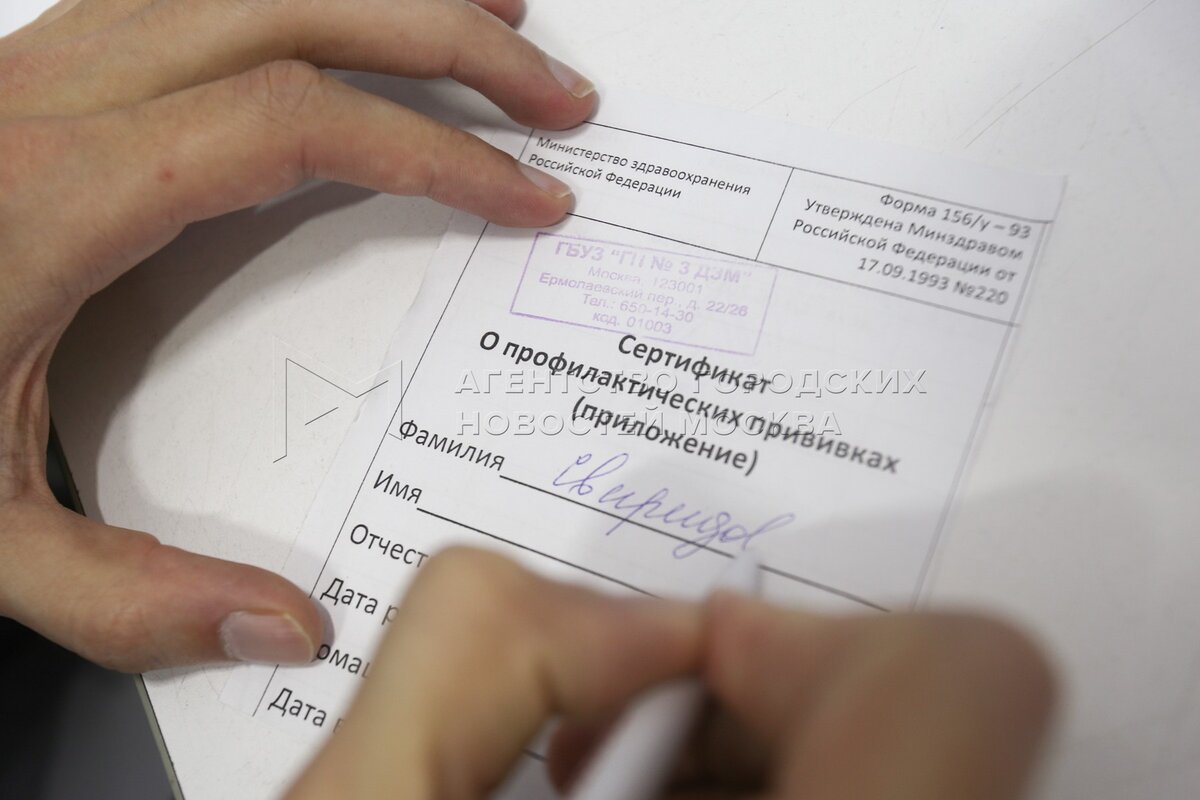 Министерство здравоохранения
Российской Федерации
Форма 156/у – 93
Утверждена Минздравом
Российской Федерации от
17.09.1993 №220
ГБУЗ "ГП № 3 ДЗМ"
Москва, 123001
Ермолаевский пер., д. 22/26
Тел.: 650-14-30
код. 01003
Сертификат
О профилактических прививках
(приложение)
АГЕНТСТВО ГОРОДСКИХ
НОВОСТЕЙ МОСКВА
Фамилия Свиридов
Имя
Отчест
Дата р
рмац
Дата